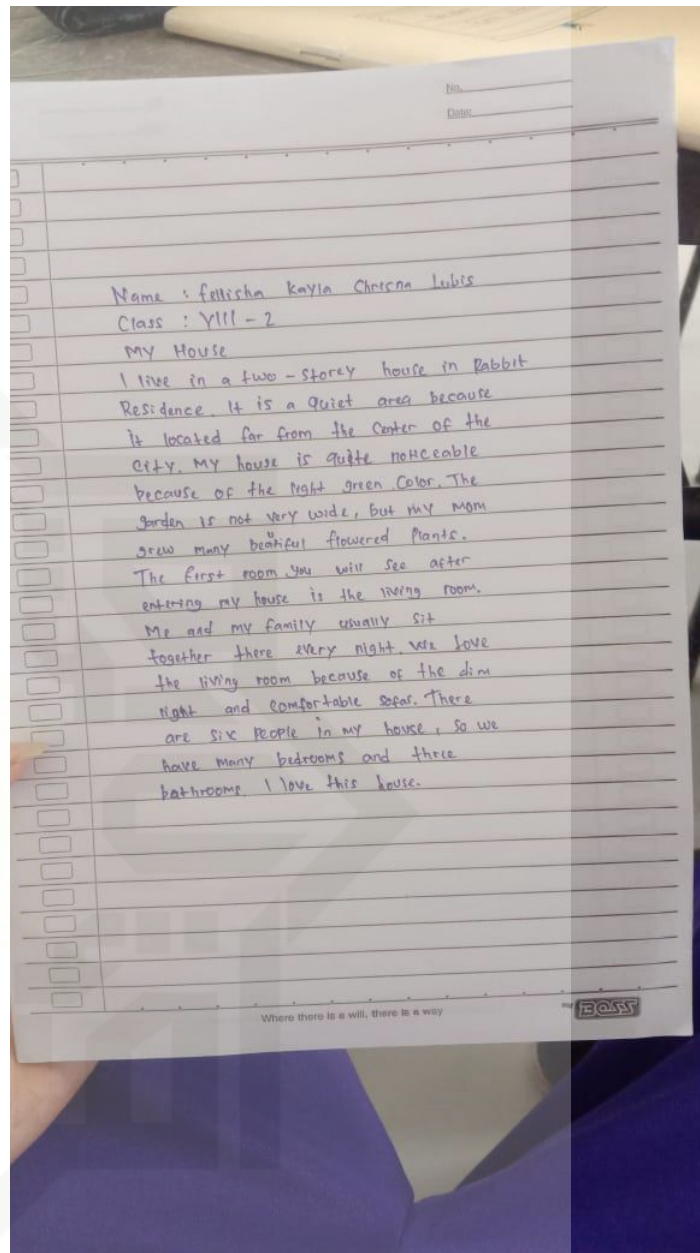 No.
Date:
Name : fellisha Kayla Chresna Lubis
Class : VIII - 2
MY House
I live in a two - storey house in Rabbit
Residence. It is a quiet area because
it located far from the Center of the
city. MY house is quite noticeable
because of the light green Color. The
garden is not very wide, but my Mom
grew many beautiful flowered Plants.
The first room you will see after
entering my house is the living room.
Me and my family usually sit
together there every night. We love
the living room because of the dim
light and comfortable sofas. There
are six people in my house, so we
have many bedrooms and three
bathrooms. I love this house.
Where there is a will, there is a way
BOSS